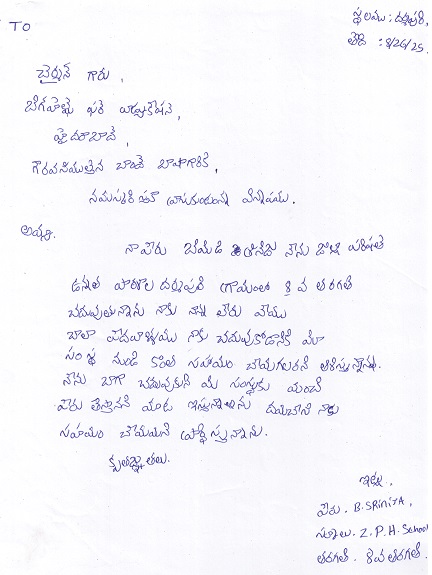 స్థలము : దర్మపురి,
తేది : 8/26/25.
TO
చైర్మన్ గారు,
బిగ్‌హెల్ప్ ఫర్ ఎడ్యుకేషన్,
హైదరాబాద్,
గౌరవనియులైన బాంద్ బాషాగారికి,
నమస్కరించి వ్రాసుకుంటున్న విన్నపము.
అయ్యా.
నా పేరు శ్రీనిజ నేను జిల్లా పరిషత్
ఉన్నత పాఠశాల దర్మపురి గ్రామంలో 8 వ తరగతి
చదువుతున్నాను నాకు నాన్న లేరు మేము
చాలా పేదవాళ్ళము నాకు చదువుకోడానికి మీ
సంస్థ నుండి కొంత సహాయం చేయగలరని ఆశిస్తున్నాను.
నేను బాగా చదువుకుని మీ సంస్థకు మంచి
పేరు తెస్తానని మాట ఇస్తున్నాను దయచేసి నాకు
సహయం చేయమని ప్రార్థిస్తున్నాను.
కృతజ్ఞతలు.
ఇట్లు,
పేరు. B. SRINIJA,
స్కూలు. Z.P.H. School
తరగతి. 8వ తరగతి.